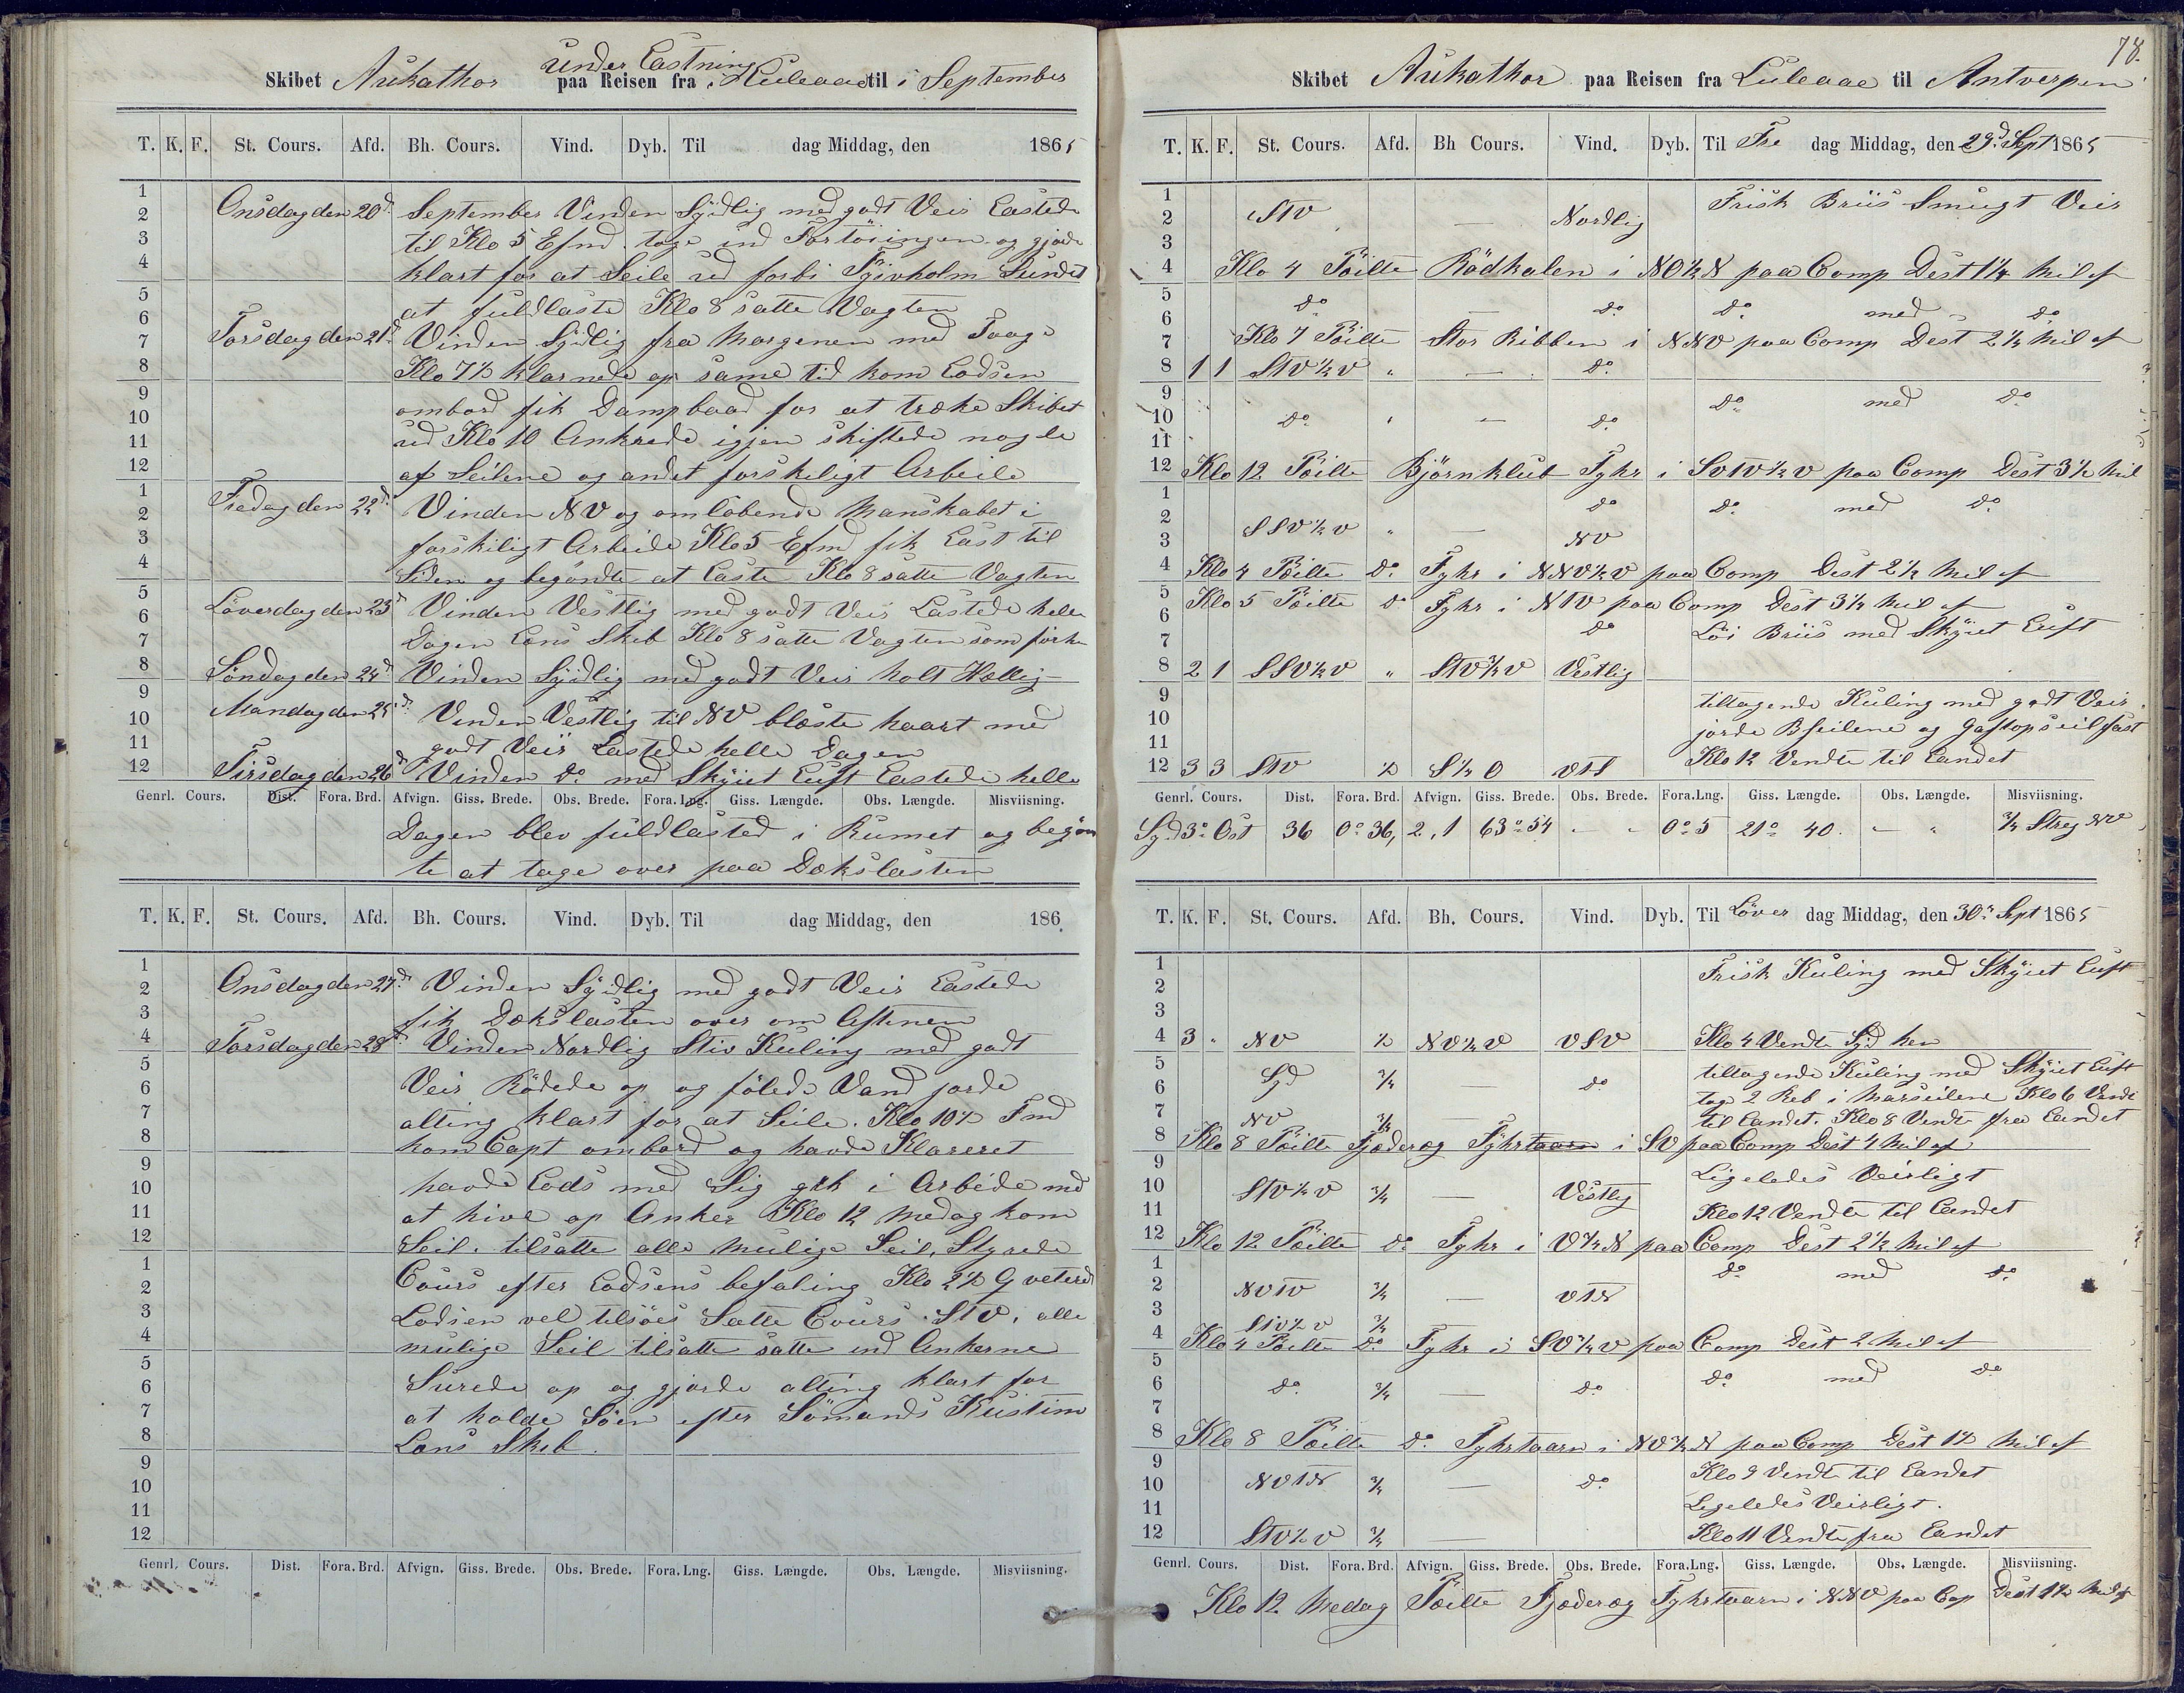 Skibet Aukathor under Lastning paa Reisen fra i Luleaae til i September
T. K. F. St. Cours. Afd. Bh. Cours. Vind. Dyb. Til dag Middag, den 1865
Onsdag den 20d September Vinden Sydlig med godt Veir Lastede
til Klo 5 Efmd. toge ind Fortöiningen og gjorde
klart for at Seile ud forbi Sundet
at fuldlaste Klo 8 satte Vagten
Torsdag den 21d Vinden Sydlig fra Morgenen med Taage
Klo 7½ klarnede op same tid kom Lodsen
ombord fik Dampbaad for at træke Skibet
ud Klo 10 Ankrede igjen skiftede nogle
af Seilene og andet forskeligt Arbeide
Fredag den 22d Vinden NV og omløbende Manskabet i
forskiligt Arbeide Klo 5 Efmd fik Last til
Siden og begöndte at Laste Klo 8 satte Vagten
Löverdag den 23d Vinden Vestlig med godt Veir Lastede hele
Dagen Lens Skib Klo 8 satte Vagten som för
Söndag den 24d Vinden Sydlig med godt Veir holt Hællig
Mandag den 25d Vinden Vestlig til NV blæste haart med
godt Veir Lastede helle Dagen
Tirsdag den 26d Vinden do med Skyiet Luft Lastede helle
Genrl. Cours. Dist. Fora. Brd. Afvign. Giss. Brede. Obs. Brede. Fora. Lng. Giss. Længde. Obs. Længde. Misviisning.
Dagen blev fuldlasted i Rumet og begön
te at tage over paa Dækslasten
T. K. F. St. Cours. Afd. Bh. Cours. Vind. Dyb. Til dag Middag, den 186
Onsdag den 27d Vinden Sydlig med godt Veir Lastede
fik Dækslasten over om Aftenen
Torsdag den 28d Vinden Nordlig Stiv Kuling med godt
Veir Rödede op og fölede Vand jorde
alting klart for at Seile. Klo 10½ Fmd
kom Capt ombord og havde Klareret
havde Lods med Sig gik i Arbeide med
at hive op Anker Klo 12 Medag kom
Seil. tilsatte alle mulige Seil. Styrede
Cours efter Lodsens befaling Klo 2½ Qveterede
Lodsen vel tilsöes Satte Cours StV. alle
mulige Seil tilsatte satte ind Ankerne
Surede op og gjorde alting klart for
at holde Söen efter Sömands Kustime
Lens Skib.
Genrl. Cours. Dist. Fora. Brd. Afvign. Giss. Brede. Obs. Brede. Fora. Lng. Giss. Længde. Obs. Længde. Misviisning.
78.
Skibet Aukathor paa Reisen fra Luleaae til Antverpen
T. K. F. St. Cours. Afd. Bh Cours. Vind. Dyb. Til Fre dag Middag, den 29d Sept 1865
Frisk Briis Smugt Veir
2 StV — Nordlig
4 Klo 4 Pöilte Rödkalen i NO½N paa Comp Dest 1¼ Mil af
do — do do med do
7 Klo 7 Pöilte Stor Ribben i NNV paa Comp Dest 2¼ Mil af
8 1 1 StV½V " — do
10 do " — do do med do
12 Klo 12 Pöilte Björnklub Fyhr i paa Comp Dest 3½ Mil
do do med do
SSV½V " — NV
4 Klo 4 Pöilte do Fyhr i NNV½V paa Comp Dest 2½ Mil af
Klo 5 Pöilte do Fyhr i NtV paa Comp Dest 3½ Mil af
do Löi Briis med Skyiet Luft
8 2 1 SSV½V " StV½V Vestlig
tiltagende Kuling med godt Veir
jorde Bseilene og Gaftopseil fast
12 3 3 StV ½ S½O VtS Klo 12 Vendte til Landet
Genrl. Cours. Dist. Fora. Brd. Afvign. Giss. Brede. Obs. Brede. Fora. Lng. Giss. Længde. Obs. Længde. Misviisning.
Syd 3° Ost 36 0° 36, 2,1 63° 54 - - 0° 5 21° 40. — " ¾ Streg NV
T. K. F. St. Cours. Afd. Bh. Cours. Vind. Dyb. Til Löver dag Middag, den 30d Sept 1865
Frisk Kuling med Skyiet Luft
4 3 " NV ½ NV½V VSV Klo 4 Vendte Syd hen
Syd ¾ — do tiltagende Kuling med Skyiet Luft
tog 2 Reb i Marseilene Klo 6 Vendte
NV ¾ til Landet. Klo 8 Vendte fra Landet
8 Klo 8 Pöilte Fjæderæg Fyhrtaarn i SV paa Comp Dest 4 Mil af
Ligeledes Veirligt
StV½V ¾ — Vestlig
Klo 12 Vendte til Landet
12 Klo 12 Pöilte do Fyhr i V¾N paa Comp Dest 2½ Mil af
do med do
NVtV ¾ — VtN
StV½V ¾
4 Klo 4 Pöilte do Fyhr i SV¾V paa Comp Dest 2 Mil af
do ¾ — do do med do
8 Klo 8 Pöilte do Fyhrtaarn i NV¾N paa Comp Dest 1½ Mil af
Klo 9 Vendte til Landet
NVtN ¾ — do
Legeledes Veirligt.
StV½V ¾ — Klo 11 Vendte fra Landet
Genrl. Cours. Dist. Fora. Brd. Afvign. Giss. Brede. Obs. Brede. Fora. Lng. Giss. Længde. Obs. Længde. Misviisning.
Klo 12 Medag Pöilte Fjæderæg Fyhrtaarn i NNV paa Cop Dest 1½ Mil af